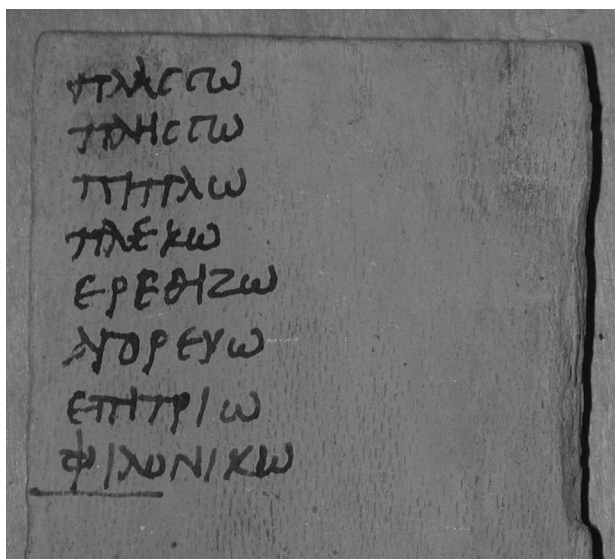 πλαϲϲω
πληϲϲω
πιπλω
πλεκω
ερεθιζω
αγορευω
επιπριω
φιλονικω